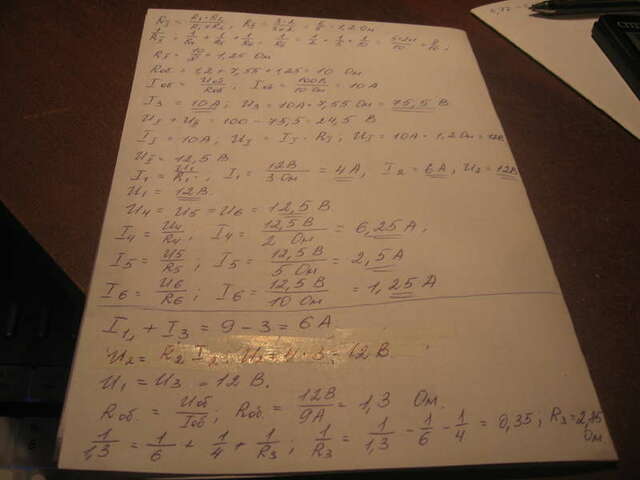 R_I = R₁·R₂ / R₁+R₂; R_I = 3·2 / 3+2 = 6/5 = 1,2 Ом
1/R_II = 1/R₄ + 1/R₅ + 1/R₆; 1/R_II = 1/2 + 1/5 + 1/10 = 5+2+1 / 10 = 8/10;
10/8 = 1,25 Ом
Rоб = 1,2 + 7,55 + 1,25 = 10 Ом
Iоб = Uоб/Rоб; Iоб = 100В / 10 Ом = 10 А
I₃ = 10А; U₃ = 10А · 7,55 Ом = 75,5 В
= 100 − 75,5 = 24,5 В
= 10А, U_I = · R_I; U_I = 10А · 1,2 Ом = 12В
= 12,5 В
I₁ = U₁/R₁; I₁ = 12В / 3 Ом = 4 А, I₂ = 6А, U₂ = 12В
U₁ = 12В.
U₄ = U₅ = U₆ = 12,5 В
I₄ = U₄/R₄; I₄ = 12,5 В / 2 Ом = 6,25 А;
I₅ = U₅/R₅; I₅ = 12,5 В / 5 Ом = 2,5 А
I₆ = U₆/R₆; I₆ = 12,5 В / 10 Ом = 1,25 А
I₁, + I₃ = 9 − 3 = 6 А
U₂ = R₂ I₂ U₂ = 4 · 3 = 12 В.
U₁ = U₃ = 12 В.
Rоб. = Uоб/Iоб; Rоб. = 12В / 9А = 1,3 Ом.
1/1,3 = 1/6 + 1/4 + 1/R₃; 1/R₃ = 1/1,3 − 1/6 − 1/4 = 0,35; R₃ = 2,85 Ом.